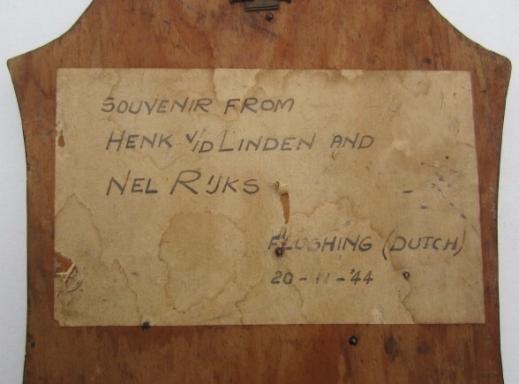 SOUVENIR FROM
HENK V/D LINDEN AND
NEL RIJKS
FLUSHING (DUTCH)
20-11-'44